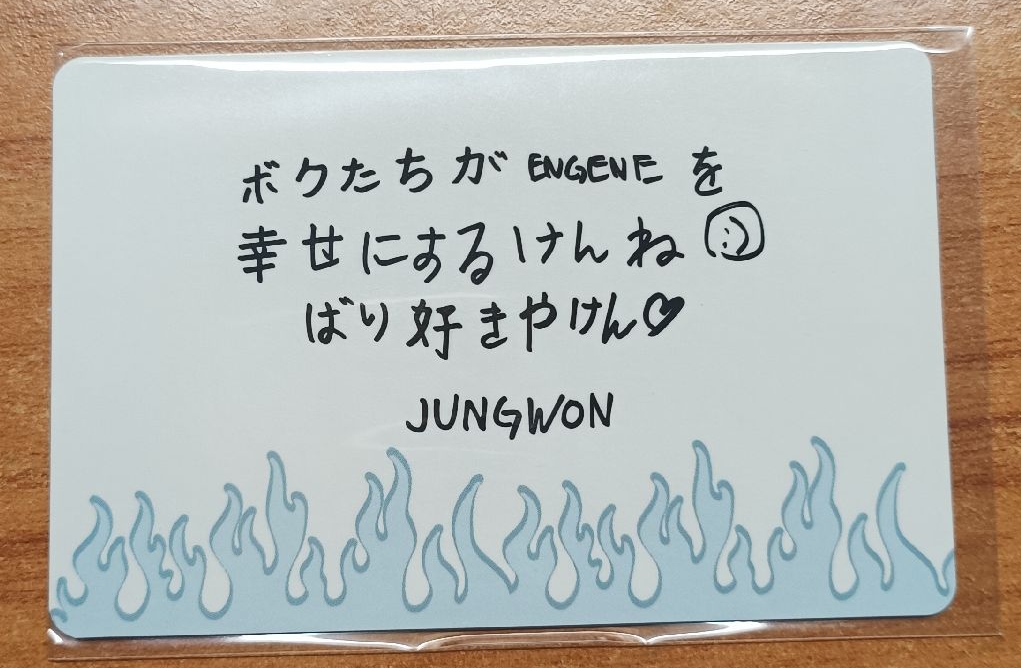 ボクたちがENGENEを
幸せにするけんね
ばり好きやけん♡
JUNGWON